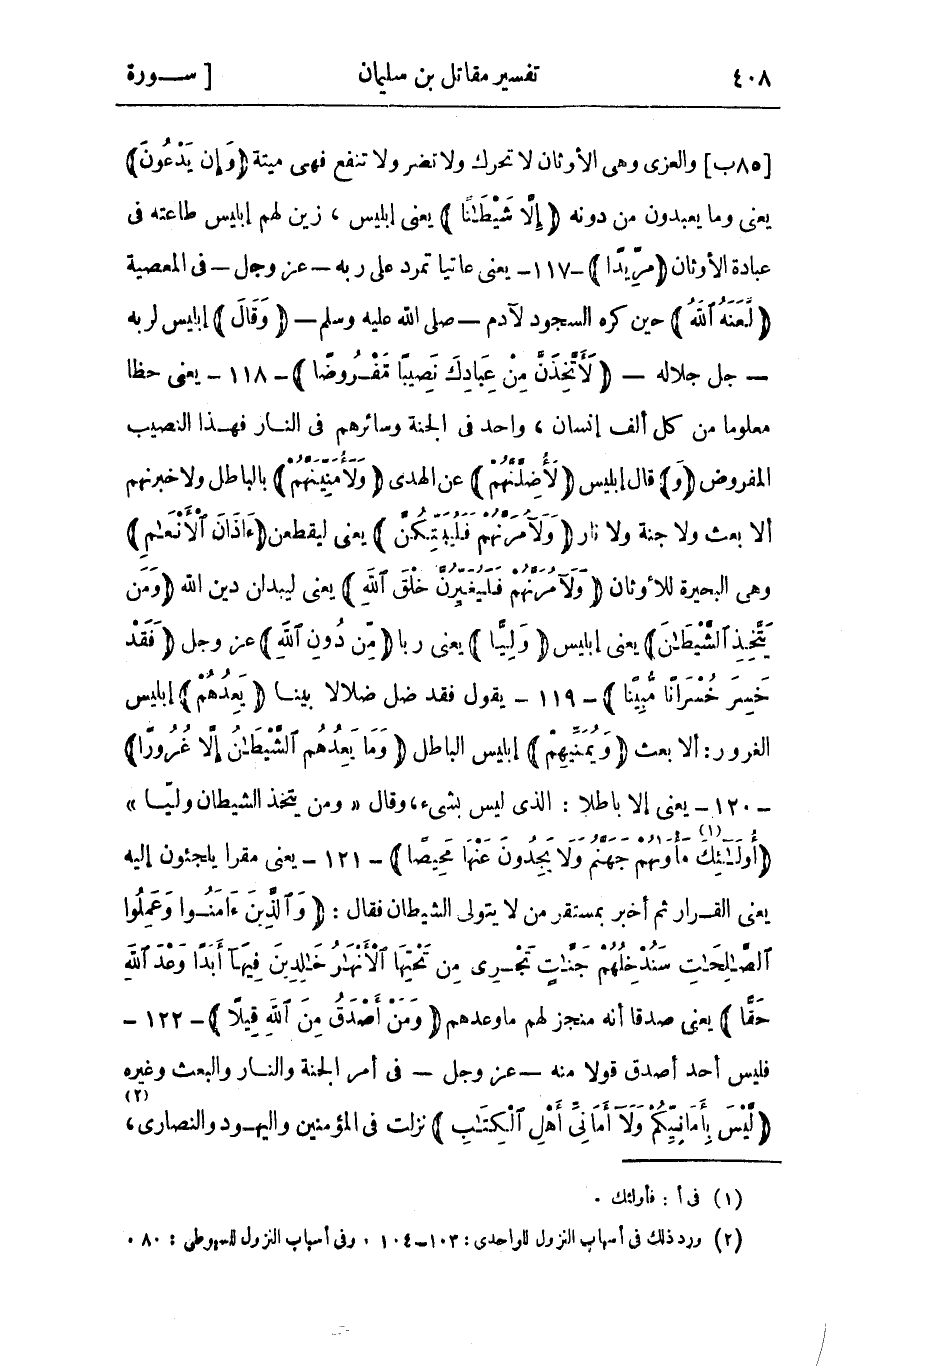 ٤٠٨ تفسير مقاتل بن سليمان [ ســورة
[٨٥ب] والعزى وهى الأوثان لا تحرك ولا تضر ولا تنفع فهى ميتة ﴿وَإِن يَدْعُونَ﴾
يعنى وما يعبدون من دونه ﴿ إِلَّا شَيْطَـٰنًا ﴾ يعنى إبليس ، زين لهم إبليس طاعته فى
عبادة الأوثان ﴿مَّرِيدًا ﴾ -١١٧- يعنى عاتيا تمرد على ربه - عز وجل - فى المعصية
﴿ لَّعَنَهُ ٱللَّهُ ﴾ حين كره السجود لآدم - صلى الله عليه وسلم - ﴿ وَقَالَ ﴾ إبليس لربه
- جل جلاله - ﴿ لَأَتَّخِذَنَّ مِنْ عِبَادِكَ نَصِيبًا مَّفْـرُوضًا ﴾ - ١١٨ - يعنى حظا
معلوما من كل ألف إنسان ، واحد فى الجنة وسائرهم فى النـار فهـذا النصيب
المفروض ﴿وَ﴾ قال إبليس ﴿ لَأُضِلَّنَّهُمْ ﴾ عن الهدى ﴿ وَلَأُمَنِّيَنَّهُمْ ﴾ بالباطل ولاخبرنهم
ألا بعث ولا جنة ولا نار ﴿ وَلَآمُرَنَّهُمْ فَلَيُبَتِّكُنَّ ﴾ يعنى ليقطعن ﴿ءَاذَانَ ٱلْأَنْعَـٰمِ ﴾
وهى البحيرة للأوثان ﴿ وَلَآمُرَنَّهُمْ فَلَيُغَيِّرُنَّ خَلْقَ ٱللَّهِ ﴾ يعنى ليبدلن دين الله ﴿وَمَن
يَتَّخِذِ ٱلشَّيْطَـٰنَ﴾ يعنى إبليس ﴿ وَلِيًّا ﴾ يعنى ربا ﴿ مِّن دُونِ ٱللَّهِ ﴾ عز وجل ﴿ فَقَدْ
خَسِرَ خُسْرَانًا مُّبِينًا ﴾ - ١١٩ - يقول فقد ضل ضلالا بينـا ﴿ يَعِدُهُمْ ﴾ إبليس
الغرور : ألا بعث ﴿ وَيُمَنِّيهِمْ ﴾ إبليس الباطل ﴿ وَمَا يَعِدُهُم ٱلشَّيْطَـٰنُ إِلَّا غُرُورًا﴾
- ١٢٠ - يعنى إلا باطلا : الذى ليس بشىء ، وقال « ومن يتخذ الشيطان وليّـا »
﴿أُولَـٰئِكَ(١) مَأْوَىٰهُمْ جَهَنَّمُ وَلَا يَجِدُونَ عَنْهَا مَحِيصًا ﴾ - ١٢١ - يعنى مقرا يلجئون إليه
يعنى القـرار ثم أخبر بمستقر من لا يتولى الشيطان فقال : ﴿ وَٱلَّذِينَ ءَامَنُـوا وَعَمِلُوا
ٱلصَّـٰلِحَـٰتِ سَنُدْخِلُهُمْ جَنَّـٰتٍ تَجْـرِى مِن تَحْتِهَا ٱلْأَنْهَـٰرُ خَـٰلِدِينَ فِيهَآ أَبَدًا وَعْدَ ٱللَّهِ
حَقًّا ﴾ يعنى صدقا أنه منجز لهم ماوعدهم ﴿ وَمَنْ أَصْدَقُ مِنَ ٱللَّهِ قِيلًا ﴾ - ١٢٢ -
فليس أحد أصدق قولا منه - عز وجل - فى أمر الجنة والنـار والبعث وغيره
﴿ لَّيْسَ بِأَمَانِيِّكُمْ وَلَآ أَمَانِىِّ أَهْلِ ٱلْكِتَـٰبِ ﴾ نزلت فى المؤمنين واليهـود والنصارى(٢) ،
(١) فى أ : فأولئك .
(٢) ورد ذلك فى أسباب النزول للواحدى : ١٠٣-١٠٤ . وفى أسباب النزول للسيوطى : ٨٠ .